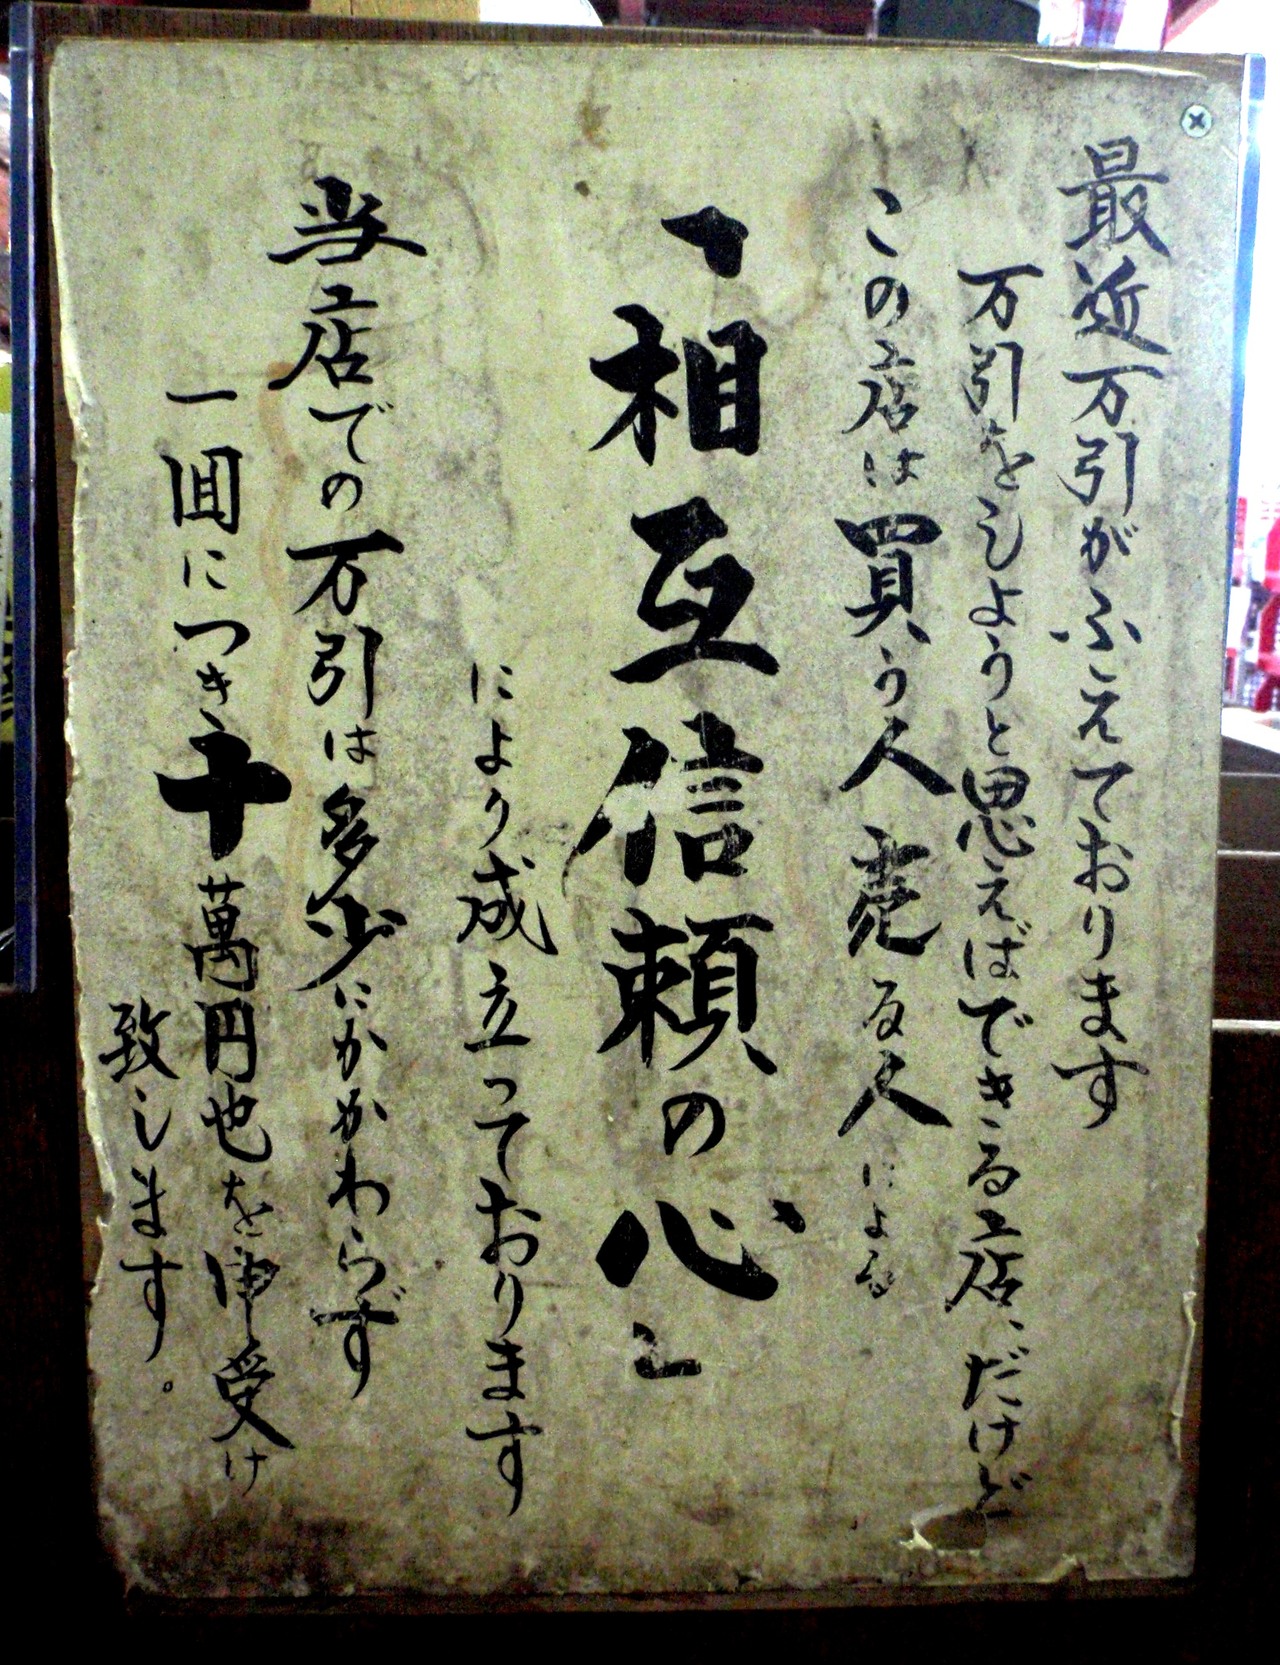 最近万引がふえております
万引をしようと思えばできる店、だけど
この店は買う人売る人による
「相互信頼の心」
により成立っております
当店での万引は多少にかかわらず
一回につき十萬円也を申受け
致します。